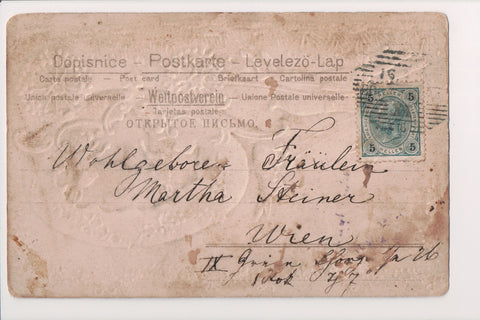 Dopisnice - Postkarte - Levelező-Lap
Carte postale - Post card - Briefkaart - Cartolina postale
Union postale universelle - Weltpostverein - Unione Postale universelle
Tarjetas postale
ОТКРЫТОЕ ПИСЬМО.
5 5
5 5
Wohlgeboren Fräulein
Martha Steiner
Wien
IX